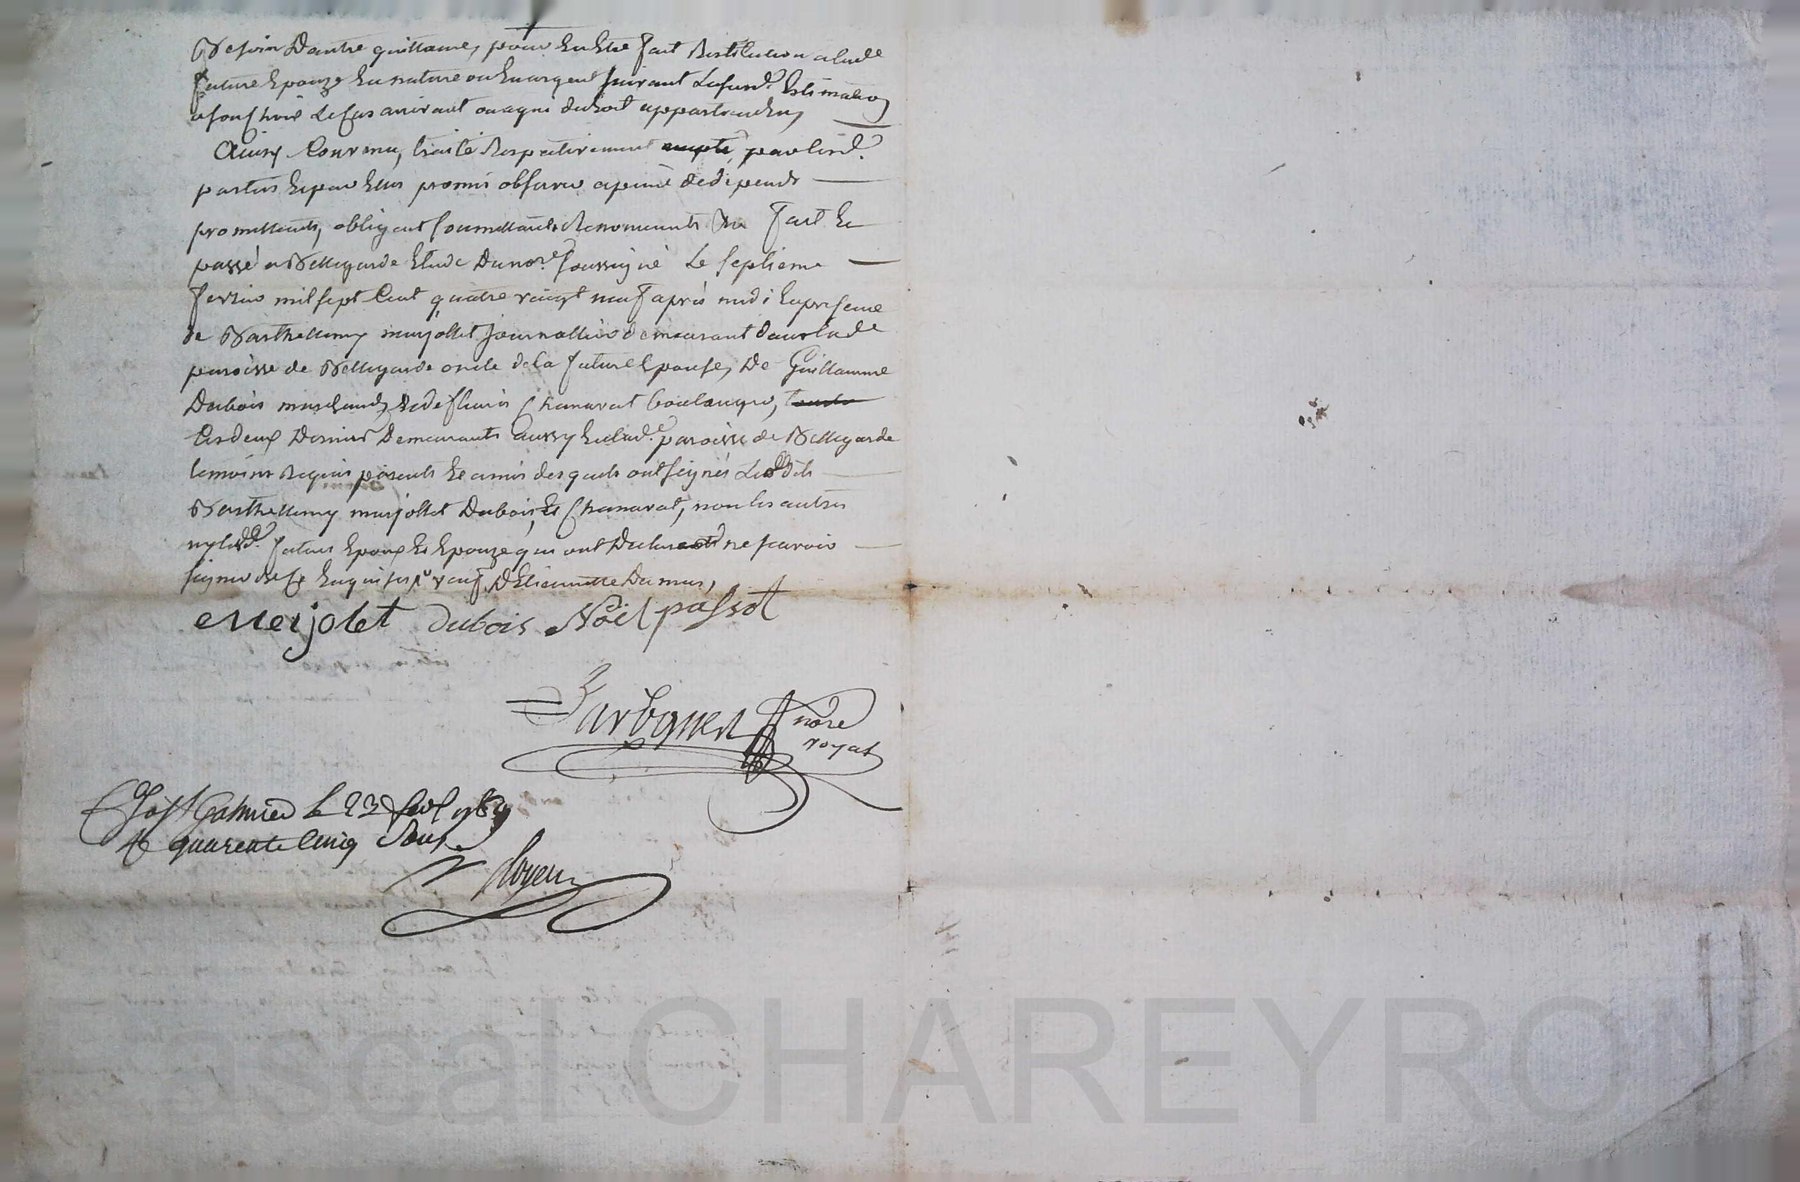 Besoin Dautre guillaume, pour En Etre fait Restitution a lad.e
future Epouze En nature ou En argent suivant Lasusd.e Estimation
a son choix Le cas arrivant ou a qui de droit appartiendra,
Ainsy Convenu, traité Respectivement accepté, par lesd.
parties Et par Elles promis observer a peine de depends
promettants, obligeant soumettants Renonceants fait Et
passé a Bellegarde Etude Du nore. soussigné Le septieme
fevrier mil sept Cent quatre vingt neuf après midi En presence
de Barthellemy murjollet Journallier demeurant dans lad.e
paroisse de Bellegarde oncle de la future Epouse, De Guillaume
Dubois marchand, Et de fleuris Chanavat boulanger,
Les deux Derniers Demeurants aussy En lad.e paroisse de Bellegarde
temoins Requis parents Et amis desquels ont signés Lesdits
Barthellemy murjollet Dubois, Et Chanavat, non les autres
ny lesd. futurs Epoux Et Epouze qui ont Declaré ne savoir
signer de ce Enquis veuf D'Etiennette Dumas,
Meijolet Dubois Noël passot
nore
royal
St Galmier le 23 fev. 1789
R quarente Cinq Sous